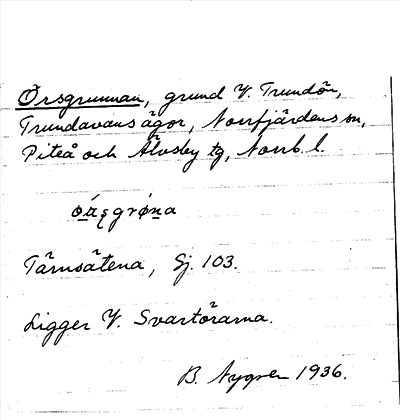 Örsgrunnan, grund V. Trundön,
Trundavans ägor, Norrfjärdens sn,
Piteå och Älvsby tg, Norrb. l.
Tärnsätena, Gj. 103.
Ligger V. Svartörarna.
B. Nygren 1936.